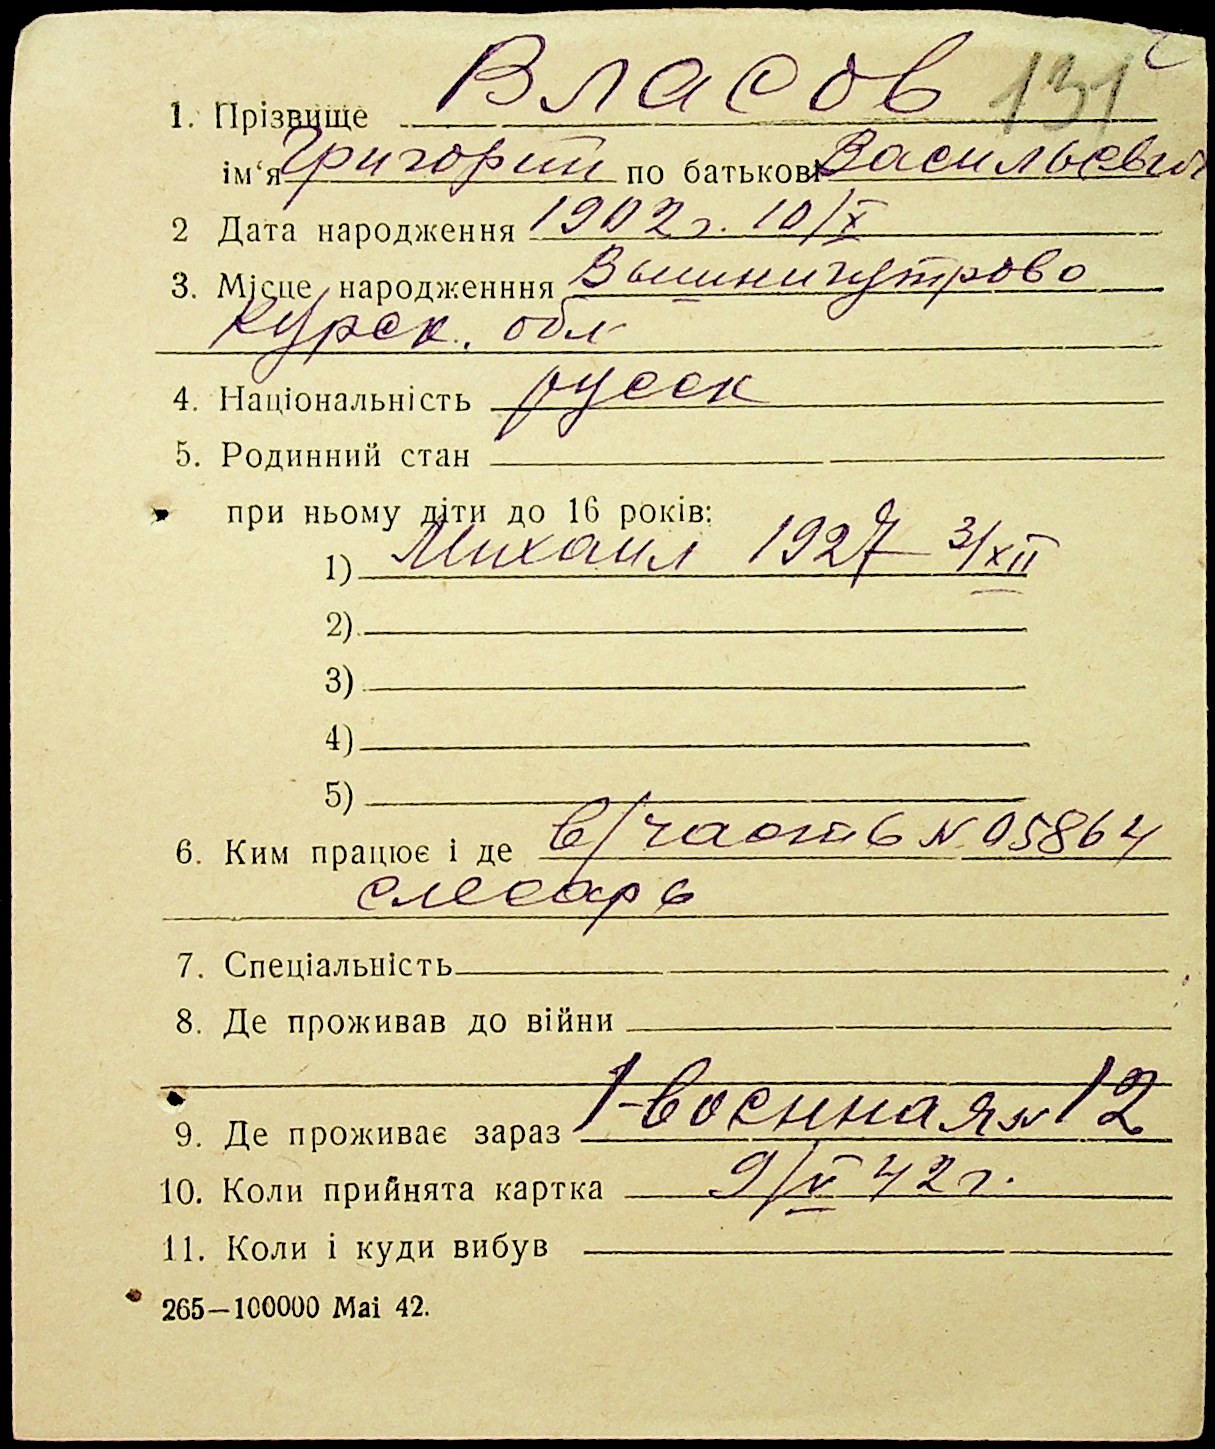 1. Прізвище Власов 131
ім‘я Григорий по батькові Васильевич
2 Дата народження 1902 г. 10/X
3. Місце народженння
Курск. обл
4. Національність русск
5. Родинний стан
при ньому діти до 16 років:
1) Михаил 1927 3/XII
2)
3)
4)
5)
6. Ким працює і де в/часть № 05864
слесарь
7. Спеціальність
8. Де проживав до війни
9. Де проживає зараз 1-военная № 12
10. Коли прийнята картка 9/V 42 г.
11. Коли і куди вибув
265—100000 Mai 42.